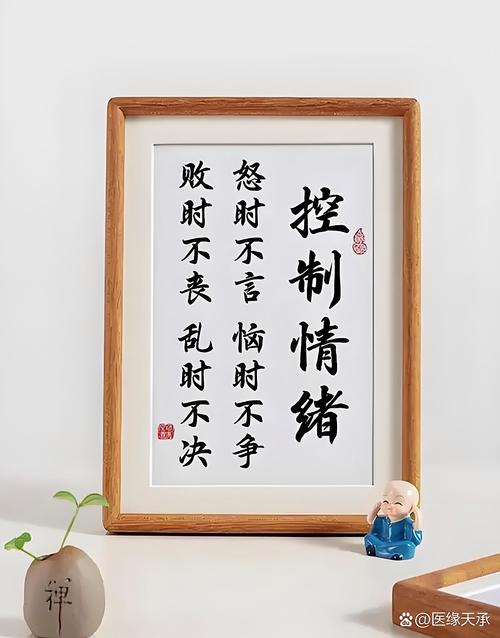 控制情绪
怒时不言 恼时不争
败时不丧 乱时不决
禅
@医缘天承